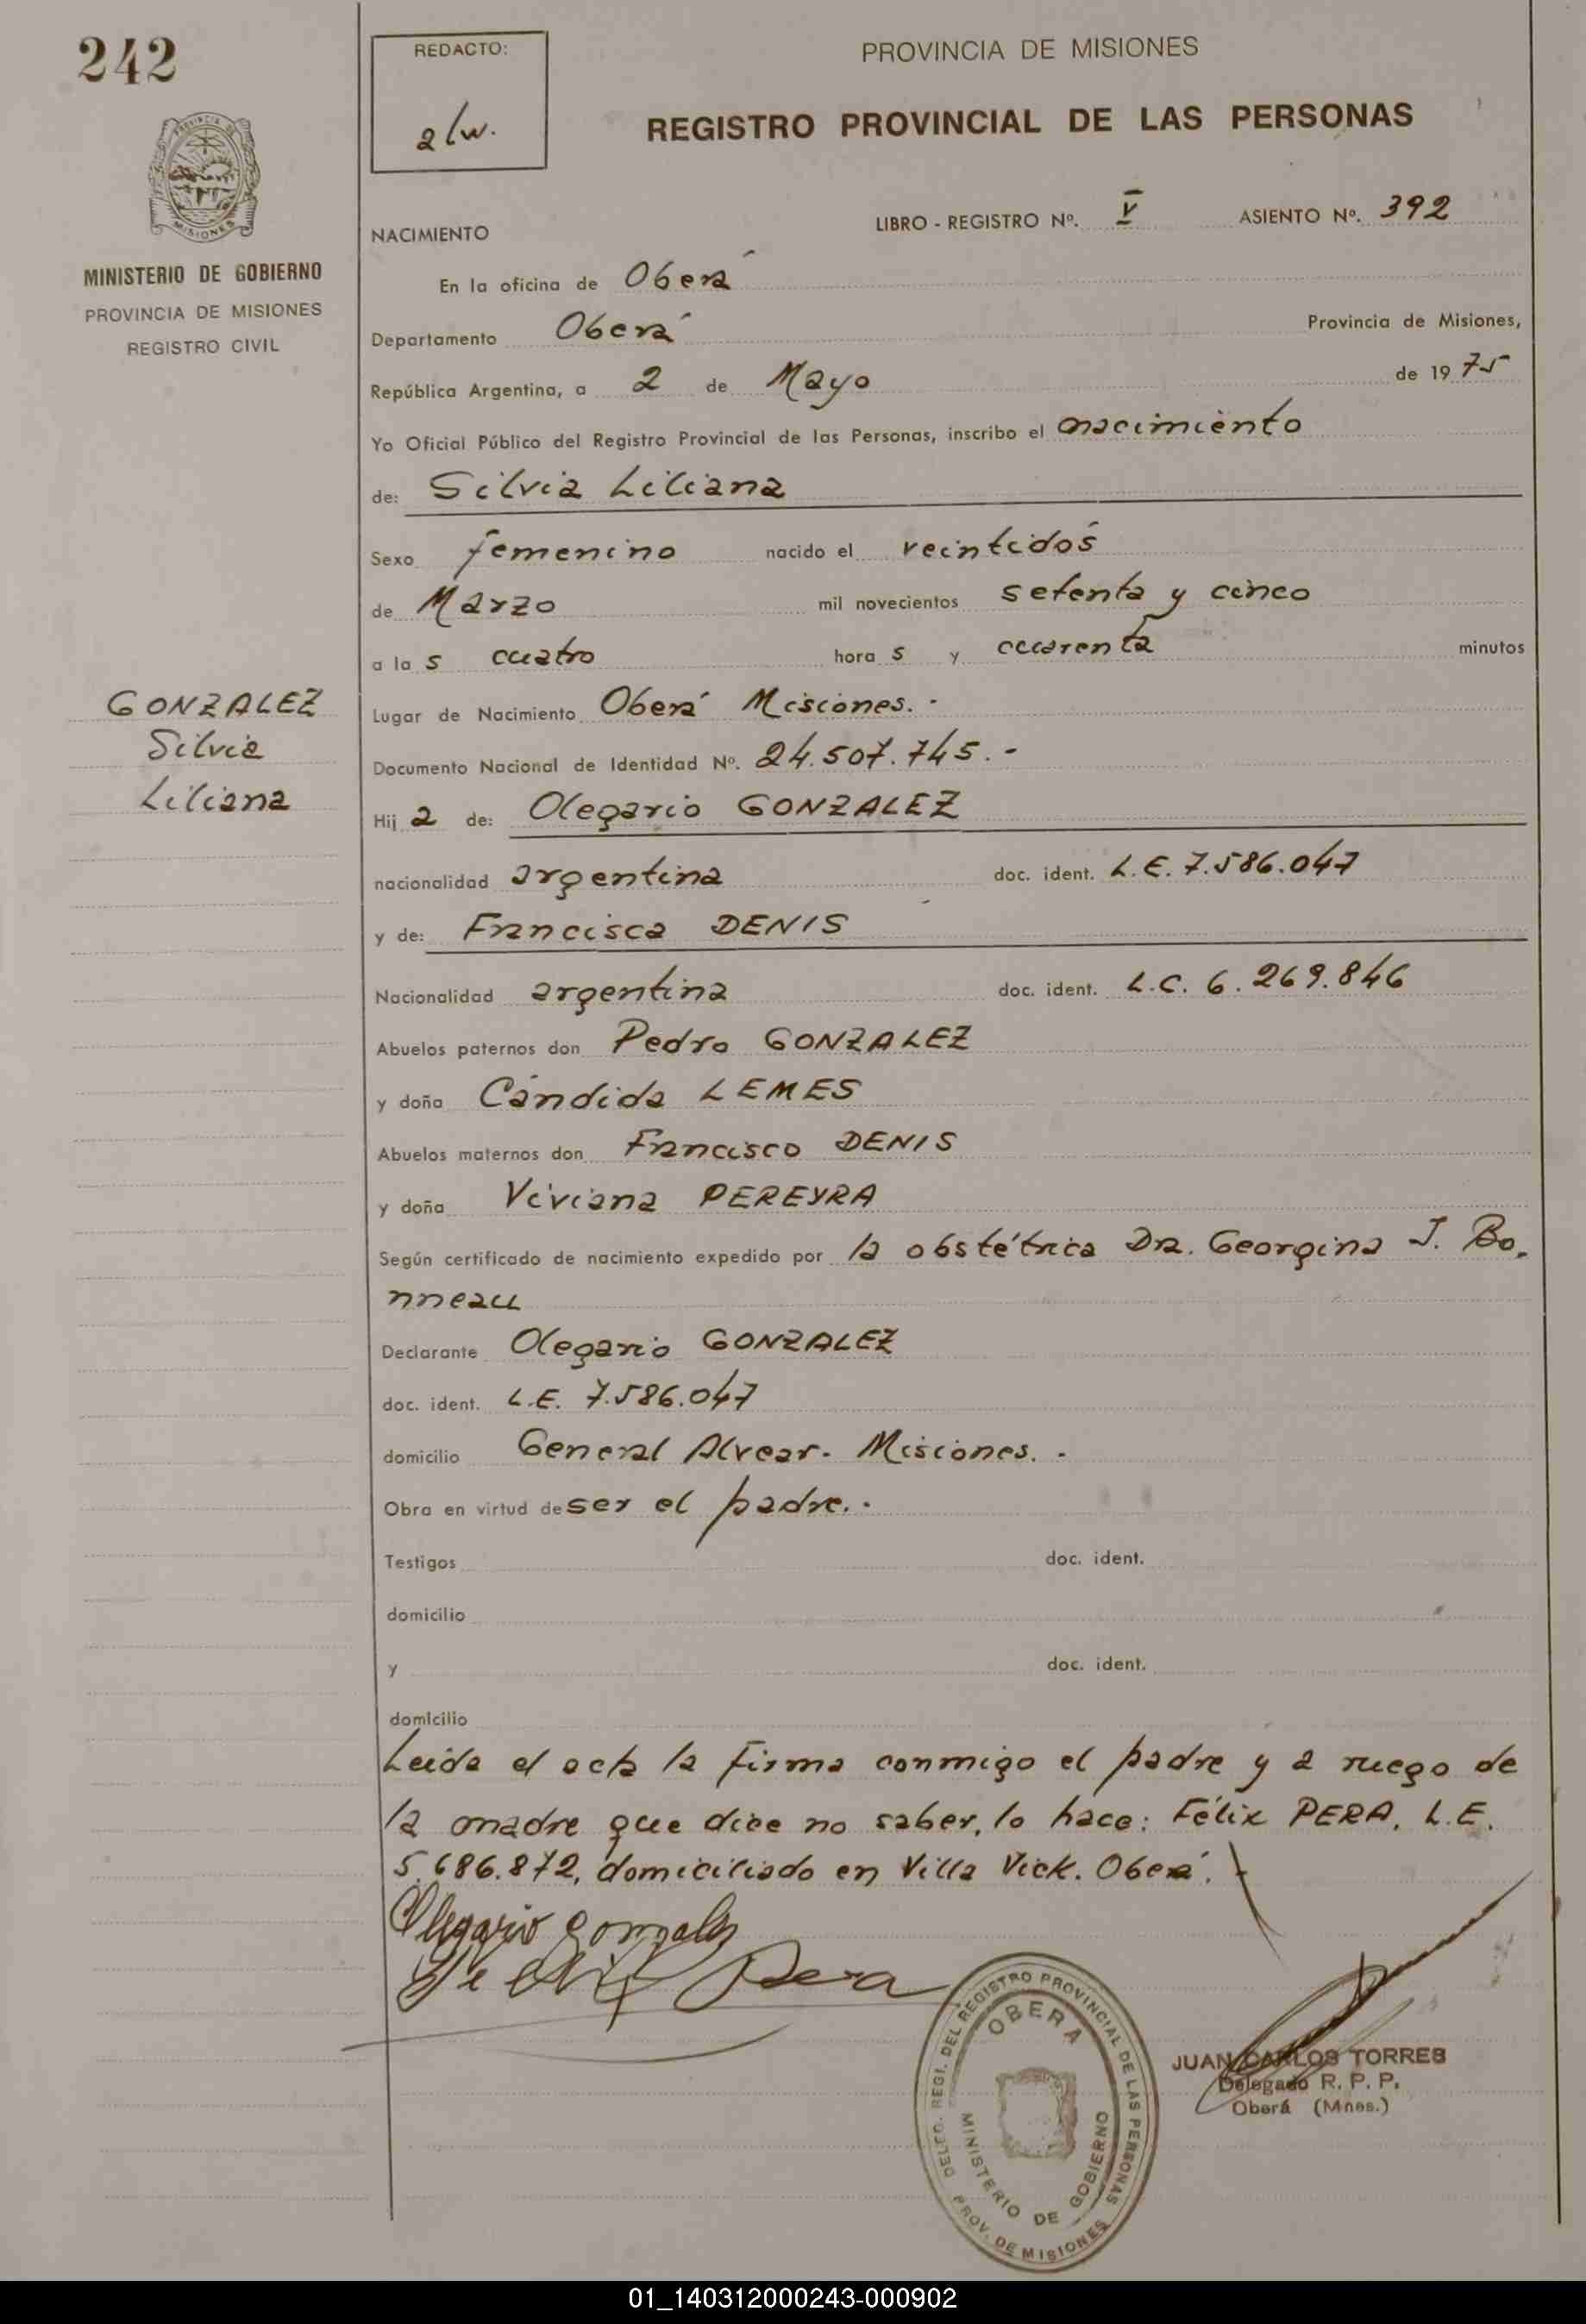 242
REDACTO:
a/w.
PROVINCIA DE MISIONES
REGISTRO PROVINCIAL DE LAS PERSONAS
PROVINCIA DE
MISIONES
MINISTERIO DE GOBIERNO
PROVINCIA DE MISIONES
REGISTRO CIVIL
NACIMIENTO
LIBRO - REGISTRO Nº. V ASIENTO Nº. 392
En la oficina de Oberá
Departamento Oberá Provincia de Misiones,
República Argentina, a 2 de Mayo de 1975
Yo Oficial Público del Registro Provincial de las Personas, inscribo el nacimiento
de: Silvia Liliana
Sexo femenino nacido el veintidós
de Marzo mil novecientos setenta y cinco
a la s cuatro hora s y cuarenta minutos
GONZALEZ
Silvia
Liliana
Lugar de Nacimiento Oberá Misiones.-
Documento Nacional de Identidad Nº. 24.507.745.-
Hij a de: Olegario GONZALEZ
nacionalidad argentina doc. ident. L.E. 7.586.047
y de: Francisca DENIS
Nacionalidad argentina doc. ident. L.C. 6.269.846
Abuelos paternos don Pedro GONZALEZ
y doña Cándida LEMES
Abuelos maternos don Francisco DENIS
y doña Viviana PEREYRA
Según certificado de nacimiento expedido por la obstétrica Dra. Georgina J. Bo-
nneau
Declarante Olegario GONZALEZ
doc. ident. L.E. 7.586.047
domicilio General Alvear. Misiones.-
Obra en virtud de ser el padre.-
Testigos doc. ident.
domicilio
y doc. ident.
domicilio
Leída el acta la firma conmigo el padre y a ruego de
la madre que dice no saber, lo hace: Félix PERA, L.E.
5.686.872, domiciliado en Villa Vick. Oberá.-
Olegario Gonzalez
Felix Pera
DELEG. REGI. DEL REGISTRO PROVINCIAL DE LAS PERSONAS
OBERA
MINISTERIO DE GOBIERNO
PROV. DE MISIONES
JUAN CARLOS TORRES
Delegado R. P. P.
Oberá (Mnes.)
01_140312000243-000902